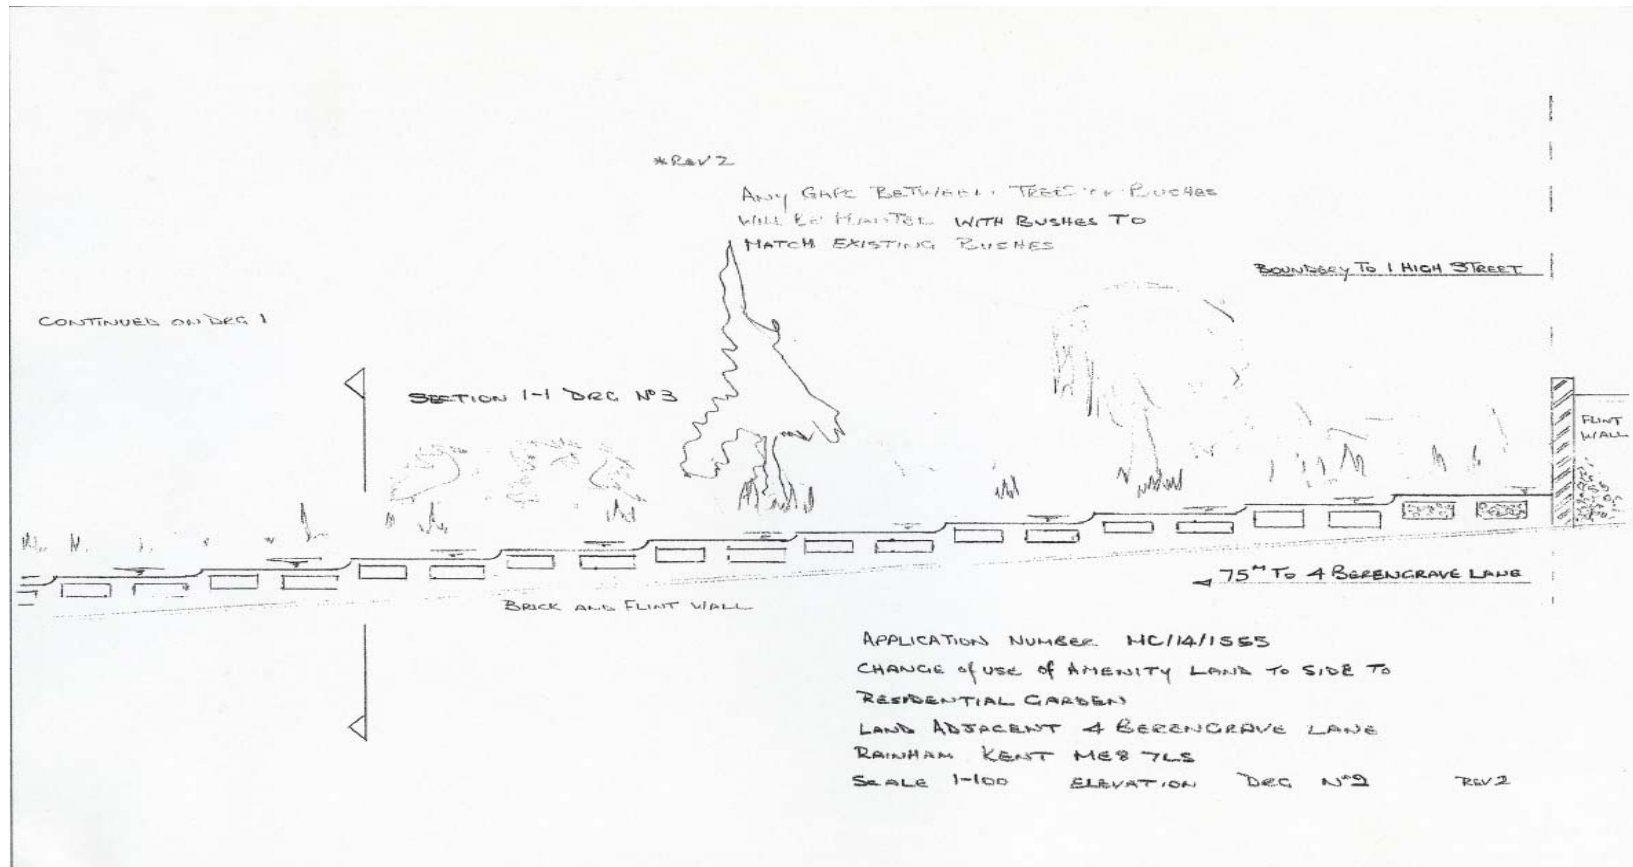 *REV 2
ANY GAPS BETWEEN TREES OR BUSHES
WILL BE PLANTED WITH BUSHES TO
MATCH EXISTING BUSHES
BOUNDERY TO 1 HIGH STREET
CONTINUED ON DRG 1
SECTION 1-1 DRG Nº 3
FLINT
WALL
75ᴹ TO 4 BERENGRAVE LANE
BRICK AND FLINT WALL
APPLICATION NUMBER MC/14/1565
CHANGE of USE of AMENITY LAND TO SIDE TO
RESIDENTIAL GARDEN
LAND ADJACENT 4 BERENGRAVE LANE
RAINHAM KENT ME8 7LS
SCALE 1-100 ELEVATION DRG Nº 2 REV 2